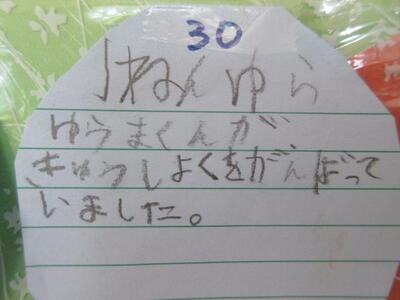 30
1ねんゆら
ゆうまくんが
きゅうしょくをがんばって
いました。